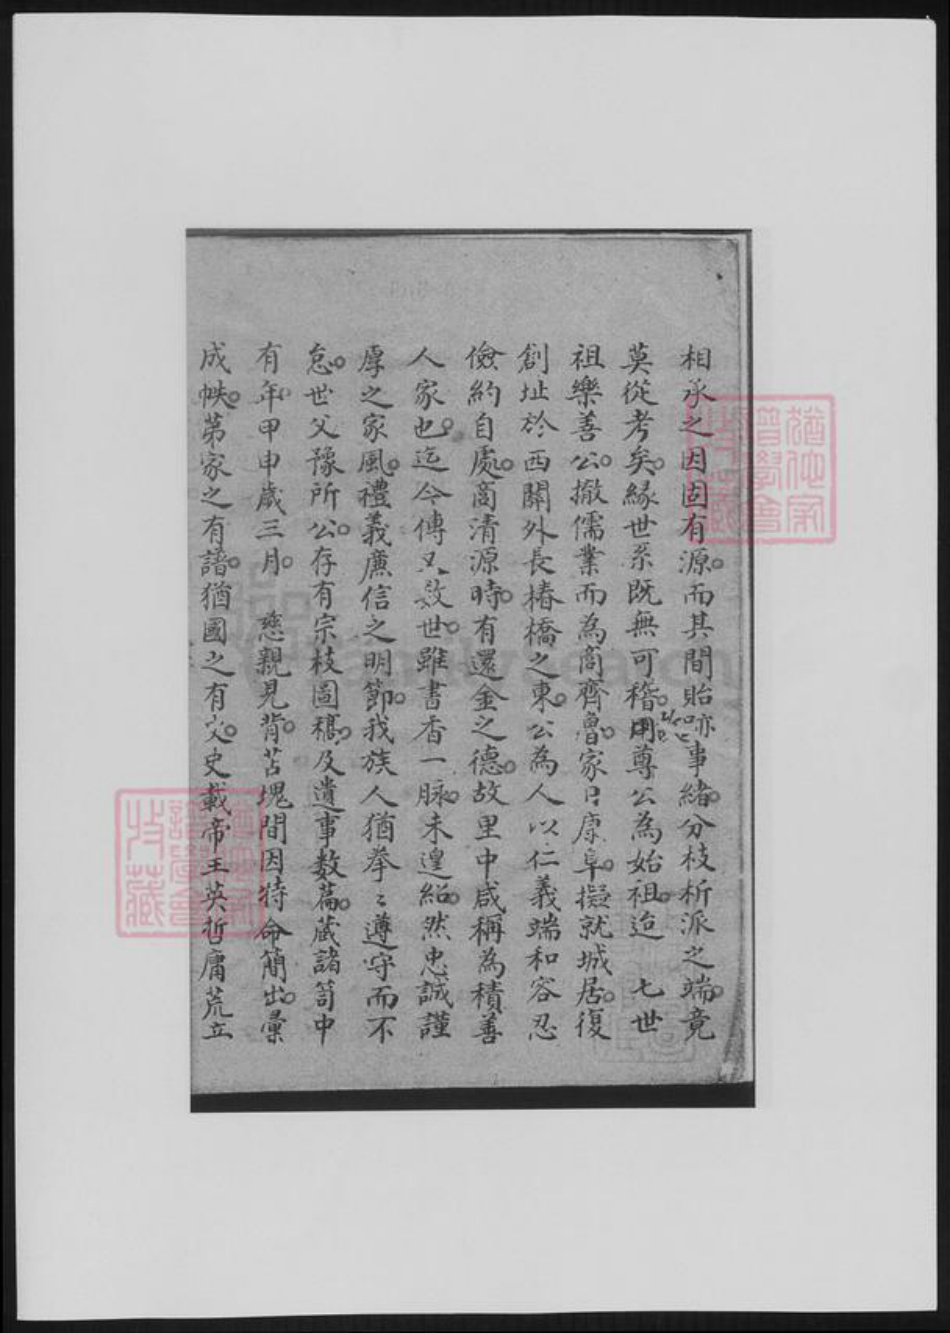 相承之因固有源。而其間貽跡事緒。分枝析派之端。竟
莫從考矣。緣世系既無可稽。用尊公為始祖。迨 七世
祖樂善公。撤儒業而為商齊魯。家日康阜。擬就城居。復
創址於西關外長椿橋之東。公為人以仁義端和容忍
儉約自處。商清源時。有還金之德。故里中咸稱為積善
人家也。迄今傳又數世。雖書香一脉。未遑紹。然忠誠謹
厚之家風。禮義廉信之明節。我族人猶拳〻遵守而不
怠。世父豫所公。存有宗枝圖稿。及遺事數篇。藏諸笥中
有年。甲申歲三月。 慈親見背。苫塊間因特命簡出。彙
成帙。第家之有譜。猶國之有史。史載帝王英哲庸荒立